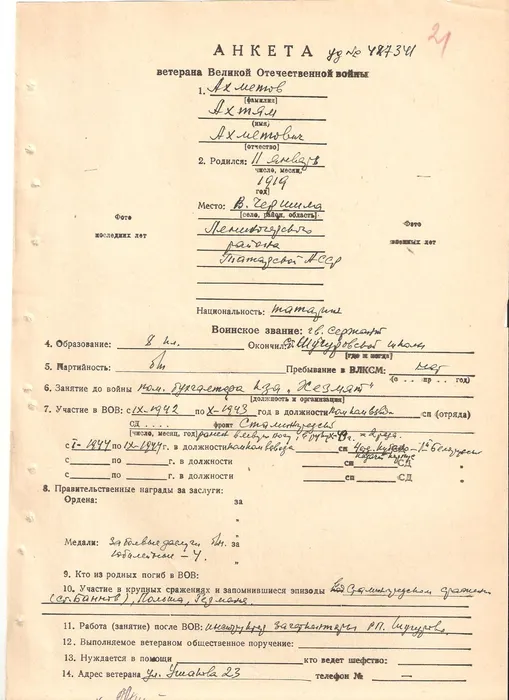 21
АНКЕТА уд № 487341
ветерана Великой Отечественной войны
1. Ахметов
[фамилия]
Ахтям
(имя)
Ахметович
[отчество]
2. Родился: 11 января
число, месяц,
1919
год]
Место: В. Чершила
[село, район, область]
Фото Лениногорского Фото
последних лет района военных лет
Татарской АССР
Национальность: татарин
Воинское звание: гв. сержант
4. Образование: 8 кл. Окончил: Шугуровской школы
[где и когда]
5. Партийность: б/п Пребывание в ВЛКСМ: нет
(с . . . пр . . год)
6. Занятие до войны пом. бухгалтера к-за „Хезмят"
[должность и организация]
7. Участие в ВОВ: с IX-1942 по X-1943 год в должности ком. взвода сп (отряда)
СД . . . . . фронт Сталинградск
[число, месяц, год] ранен в левую
с I-1944 по IX-1944 г. в должности ком. взвода сп СД 1й Белорусск
с по г. в должности сп СД
с по г. в должности сп СД
8. Правительственные награды за заслуги:
Ордена: за
„
Медали: За боевые заслуги за
юбилейные – 4. „
9. Кто из родных погиб в ВОВ:
10. Участие в крупных сражениях и запомнившиеся эпизоды в Сталинградском сражении
Польша, Германия.
11. Работа (занятие) после ВОВ: инструктор РП. Шугурово
12. Выполняемое ветераном общественное поручение:
13. Нуждается в помощи кто ведет шефство:
14. Адрес ветерана ул. Ушакова 23 телефон № –